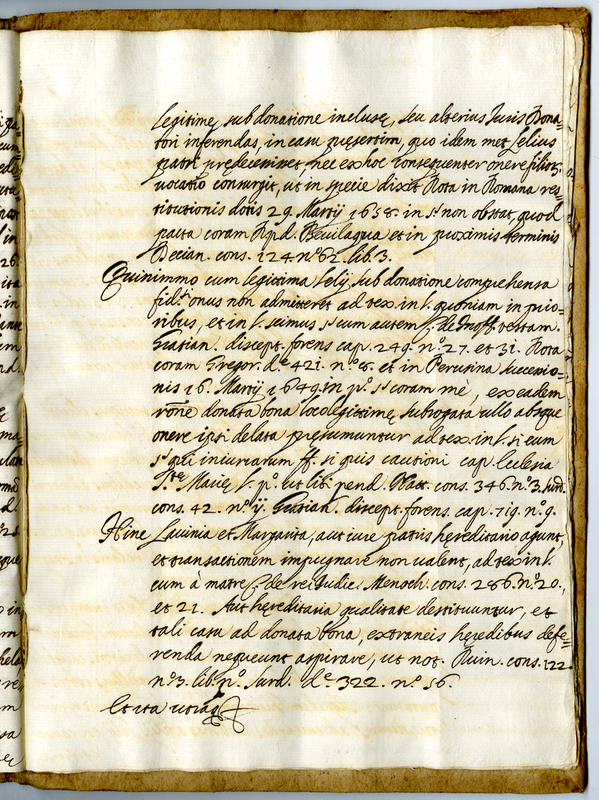 legitimę sub donatione inclusę, seu alterius Iuris Dona=
tori inferendas, in casu pręsertim, quo idem met Lelius
patri prędecessisset, nec ex hoc consequenter onere filios,
uocatio consurgit, ut in specie dixit Rota in Romana res=
titutionis dotis 29. Martij 1658. in s. non obstat, quod
pacta coram R.p.d. Beuilaqua et in proximis terminis
Decian. cons. 124 n.º 62. lib. 3.
Quinimmo cum legitima Lelij sub donatione comprehensa
fid.º onus non admitteret ad tex. in l. quoniam in prio=
ribus, et in l. scimus, s. cum autem C. de inoff. testam.
Gratian. discept. forens cap. 249. n.º 27. et 31. Rota
coram Gregor. d.e 421. n.º 8. et in Perusina successio=
nis 16. Martij 1649. in p.º s. coram mè, ex eadem
rōne donata bona loco legitimę subrogata ullo absque
onere ipsi delata pręsumuntur ad tex. in l. si eum
s. qui iniuriarum ff. si quis cautioni cap. Ecclesia
S.tę Marię, l. p.º ut liti pend. Natt. cons. 346. n.º 3. Surd.
cons. 42. n.º ij. Gratian. discept. forens. cap. 719. n.º 9.
Hinc Lauinia et Margarita, aut iure patris hęreditario agunt,
et transactionem impugnare non ualent, ad tex in l.
cum à matre C. de rei Iudic. Menoch. cons. 286. n.º 20.,
et 21. Aut hęreditaria qualitate destituuntur, et
tali casu ad donata bona, extraneis hęredibus defe=
renda nequeunt aspirare, ut not. Ruin. cons. 122
n.º 3. lib. p.º Surd. d.e 322. n.º 56.
Et ita utraq